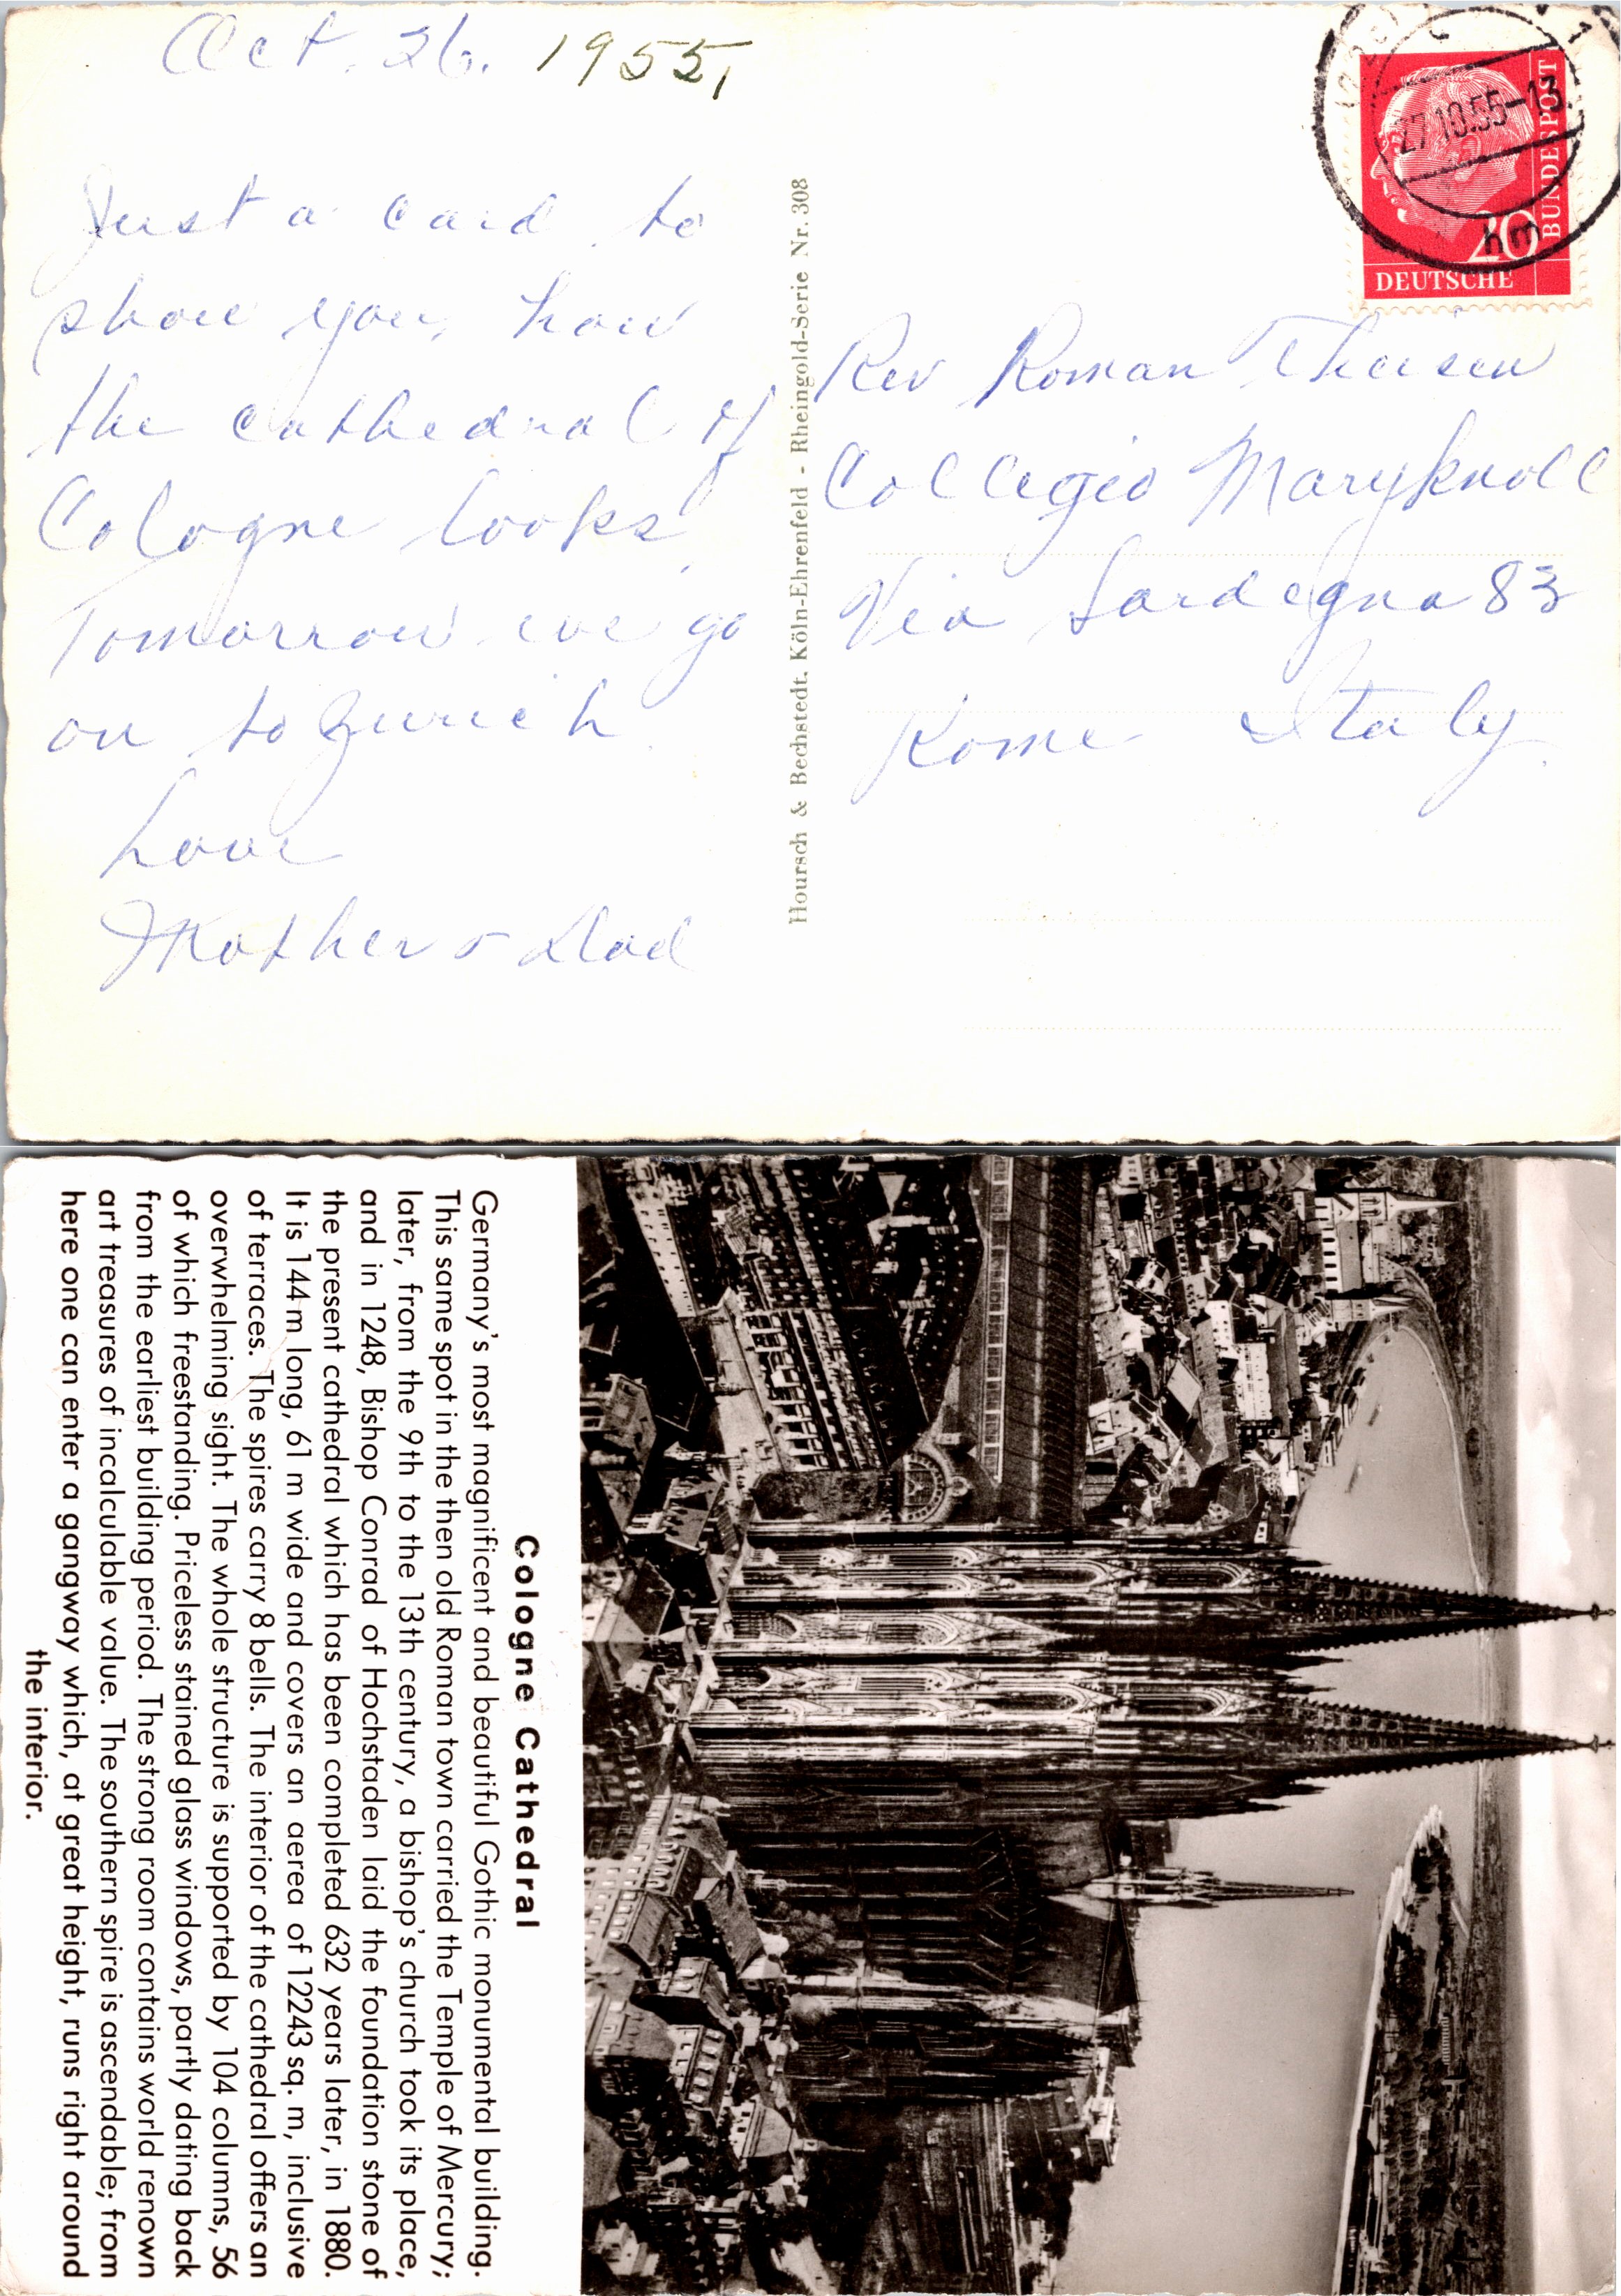 Oct. 26. 1955,
Just a card to
show you, how
the cathedral of
Cologne looks,
Tomorrow we go
on to Zurich
Love
Mother & Dad
Hoursch & Bechstedt. Köln-Ehrenfeld - Rheingold-Serie Nr. 308
27.10.55-13
hm
20
BUNDESPOST
DEUTSCHE
Rev Roman Theisen
Collegio Maryknoll
Via Sardegna 83
Rome Italy.
Cologne Cathedral
Germany's most magnificent and beautiful Gothic monumental building.
This same spot in the then old Roman town carried the Temple of Mercury;
later, from the 9th to the 13th century, a bishop's church took its place,
and in 1248, Bishop Conrad of Hochstaden laid the foundation stone of
the present cathedral which has been completed 632 years later, in 1880.
It is 144 m long, 61 m wide and covers an aerea of 12243 sq. m, inclusive
of terraces. The spires carry 8 bells. The interior of the cathedral offers an
overwhelming sight. The whole structure is supported by 104 columns, 56
of which freestanding. Priceless stained glass windows, partly dating back
from the earliest building period. The strong room contains world renown
art treasures of incalculable value. The southern spire is ascendable; from
here one can enter a gangway which, at great height, runs right around
the interior.